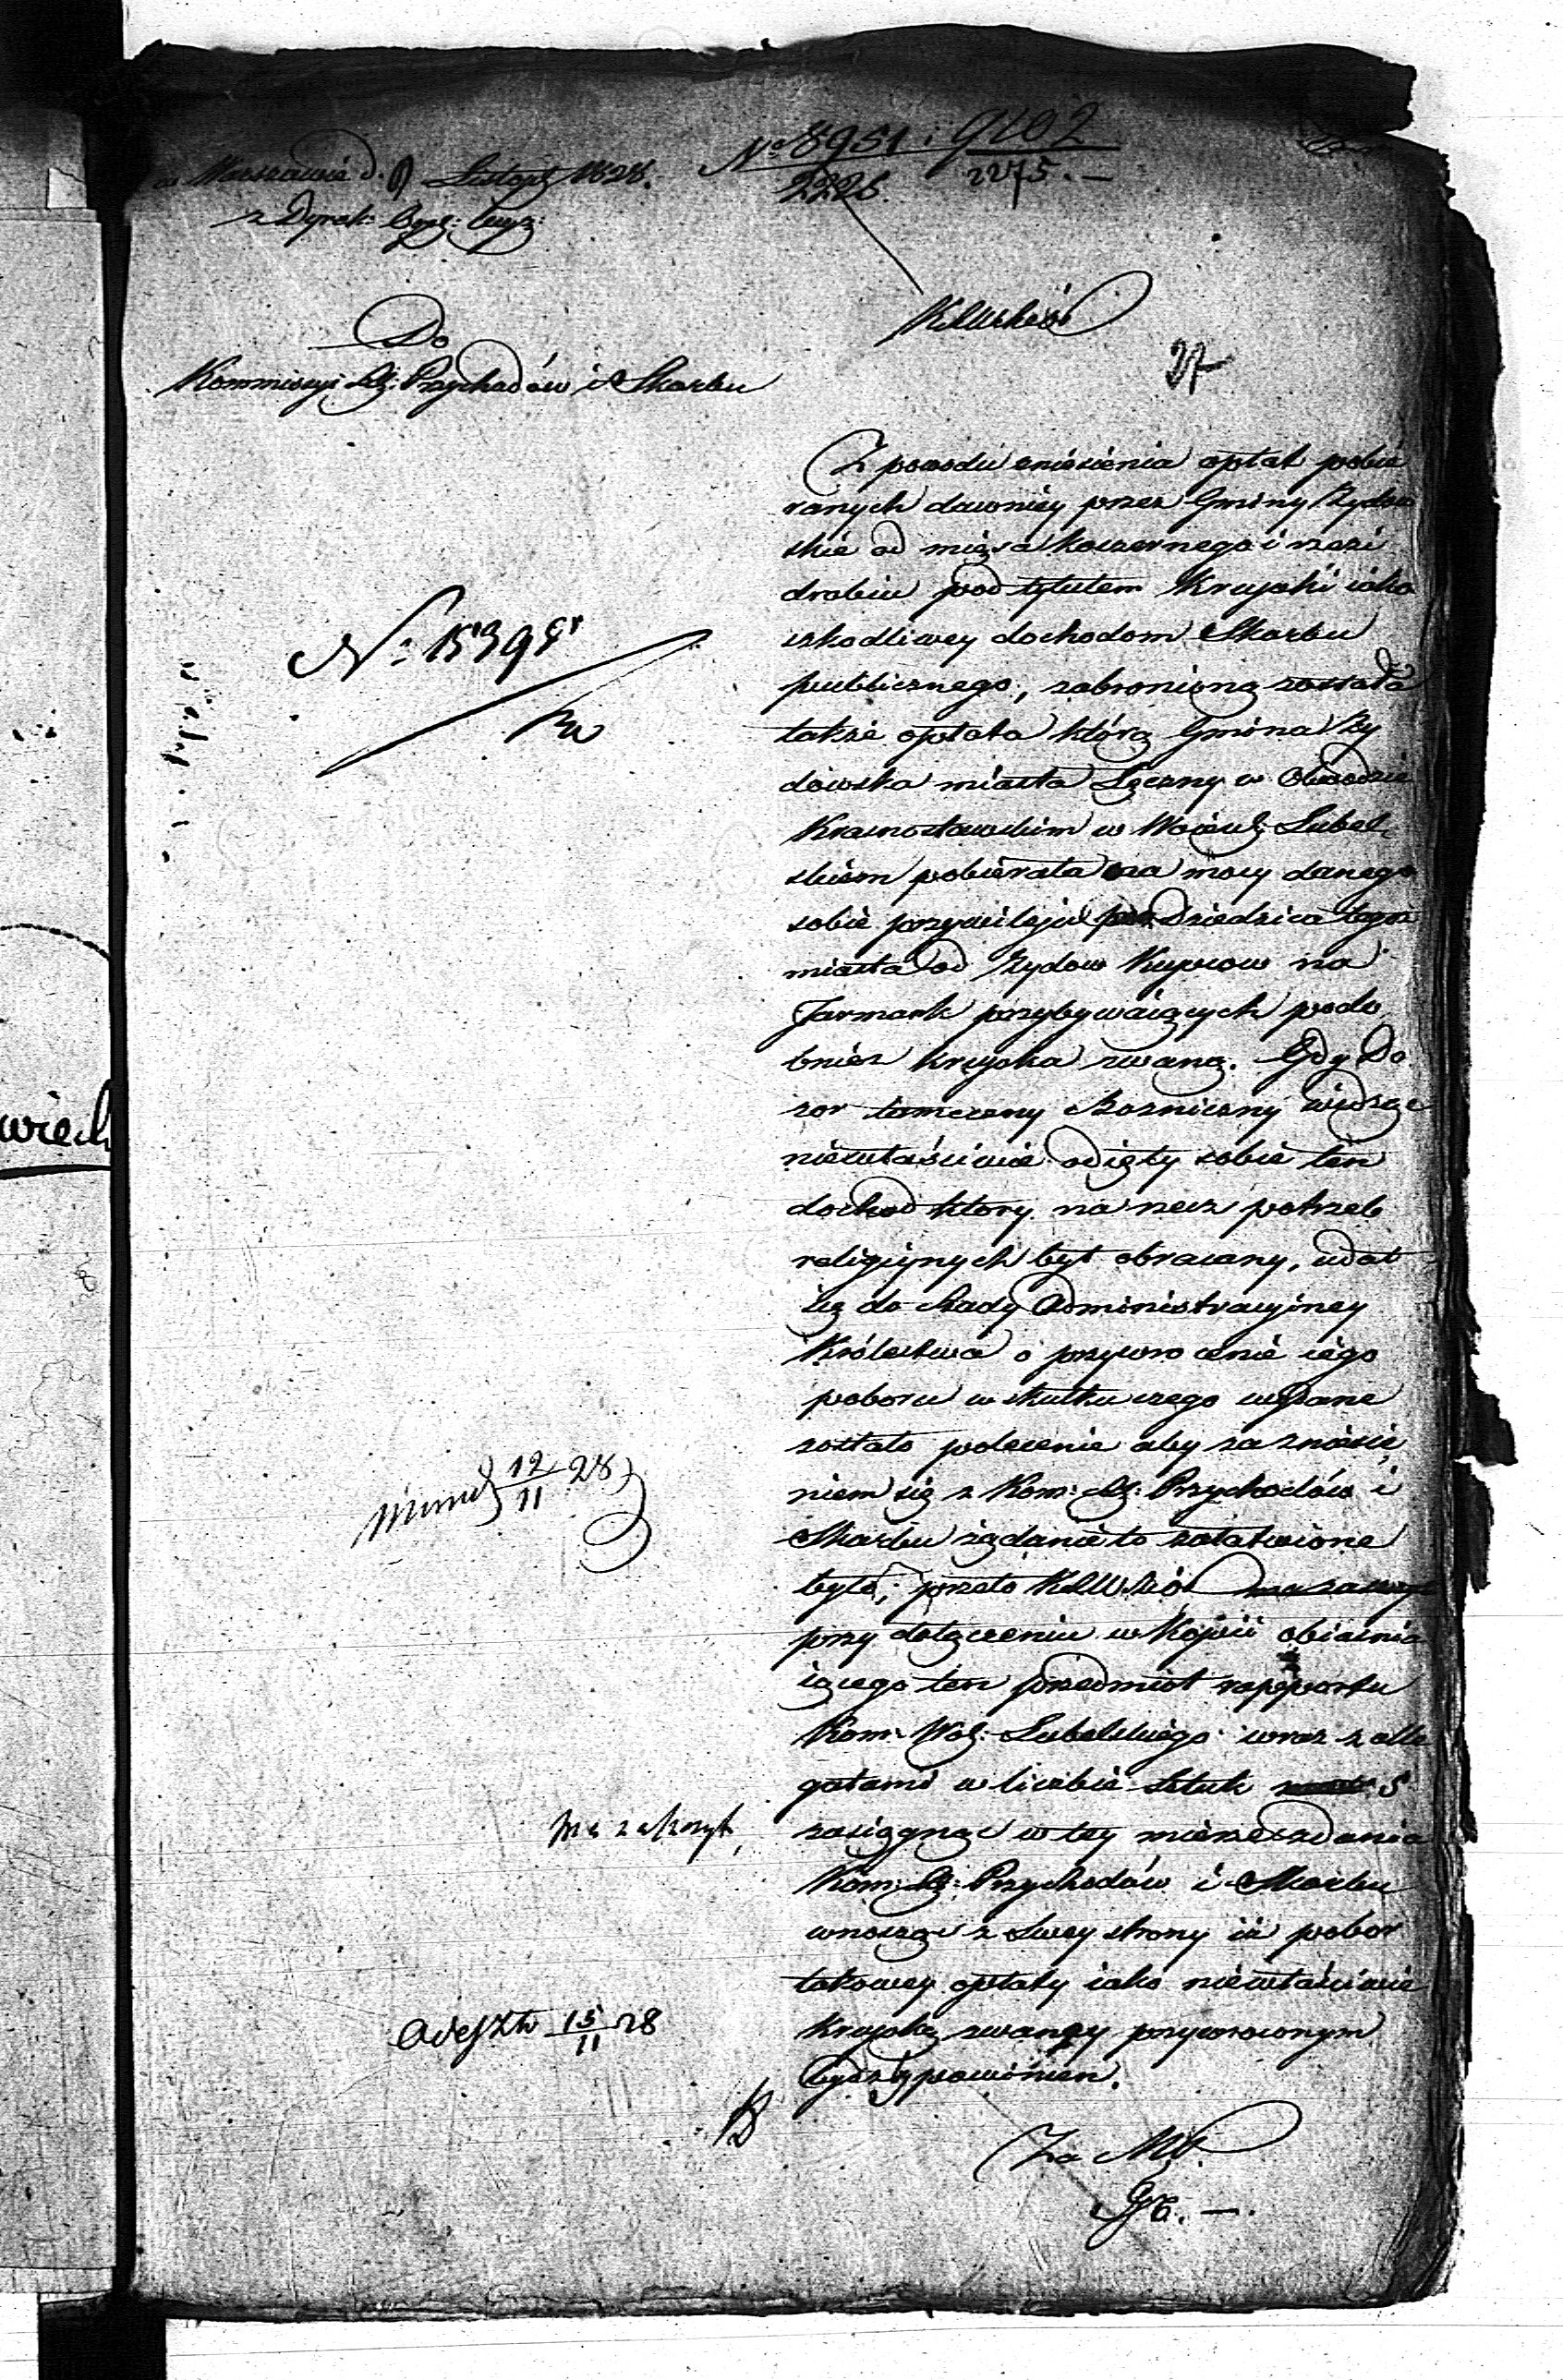 w Warszawie d. 9 Listop: 1828.
z Dyrek:
No 8951. 9202
2226. 2275. —
KRMSWiO
27
Do
Kommissyi Rz: Przychodów i Skarbu
Z powodu zniesienia opłat pobie
ranych dawniey przez Gminy Żydow
skie od mięsa koszernego i rzezi
drobiu pod tytułem Krupki iako
szkodliwey dochodom Skarbu
publicznego, zabronioną została
także opłata którą Gmina Ży
dowska miasta Łęczny w Obwodzie
Krasnostawskim w Wojewz: Lubel
skiem pobierała na mocy danego
sobie przywileju przez Dziedzica tegoż
miasta od Żydow Kupcow na
Jarmark przybywaiących podo
bnież krupka zwaną. Gdy Do
zor tameczny Bożniczny widząc
niewłaściwie odięty sobie ten
dochod ktory na rzecz potrzeb
religijnych był obracany, udał
się do Rady Administracyjney
Królestwa o przywrocenie iego
poboru w skutku czego wydane
zostało polecenie aby za zniesie
niem się z Kom: Rz: Przychodów i
Skarbu żądanie to załatwione
było; przeto KRMSWiO
przy dołączeniu w Kopii obiaśnia
iącego ten przedmiot rapportu
Kom: Woj: Lubelskiego wraz z alle
gatami w liczbie sztuk 5
zasięgnąć w tey mierze zdania
Kom: Rz: Przychodów i Skarbu
wnosząc z swey strony iż pobor
takowey opłaty iako niewłaściwie
Krupką zwaney przywroconym
bydź powinien.
Za MP.
No 15398
ma zaszczyt
12/11 28
Odeszło 15/11 28